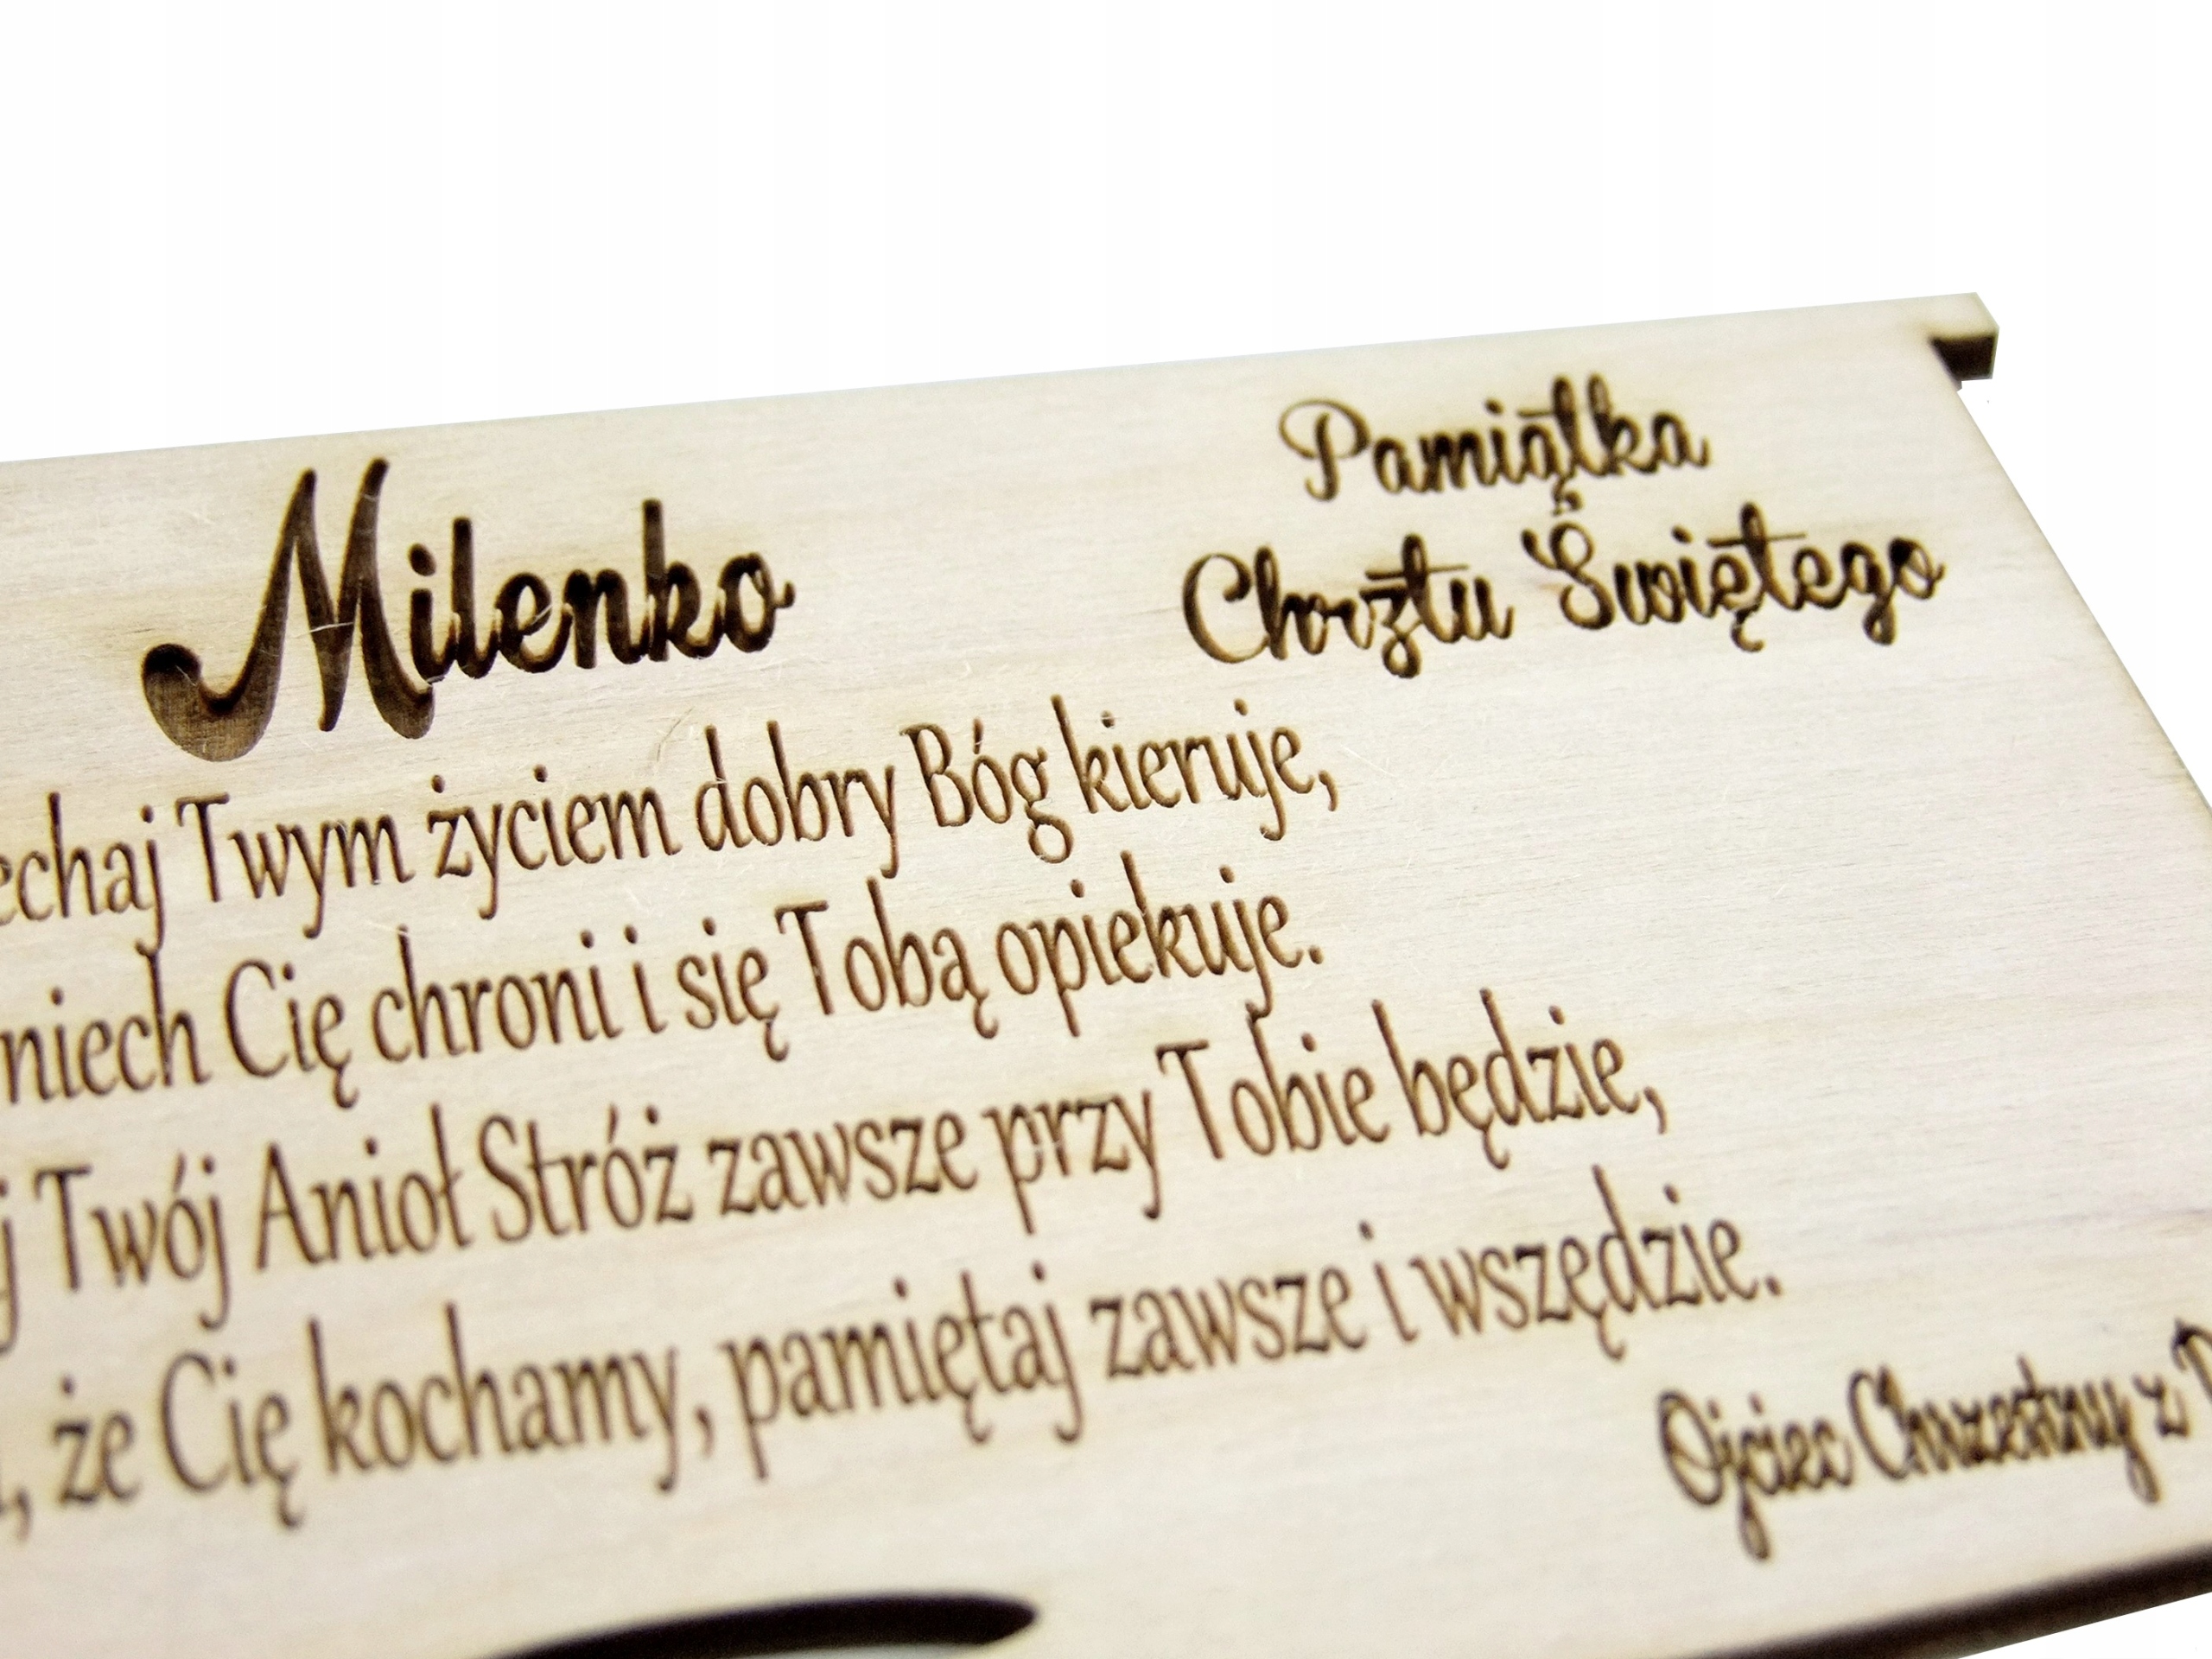 Milenko
Pamiątka
Chrztu Świętego
echaj Twym życiem dobry Bóg kieruje,
niech Cię chroni i się Tobą opiekuje.
j Twój Anioł Stróż zawsze przy Tobie będzie,
, że Cię kochamy, pamiętaj zawsze i wszędzie.
Ojciec Chrzestny z